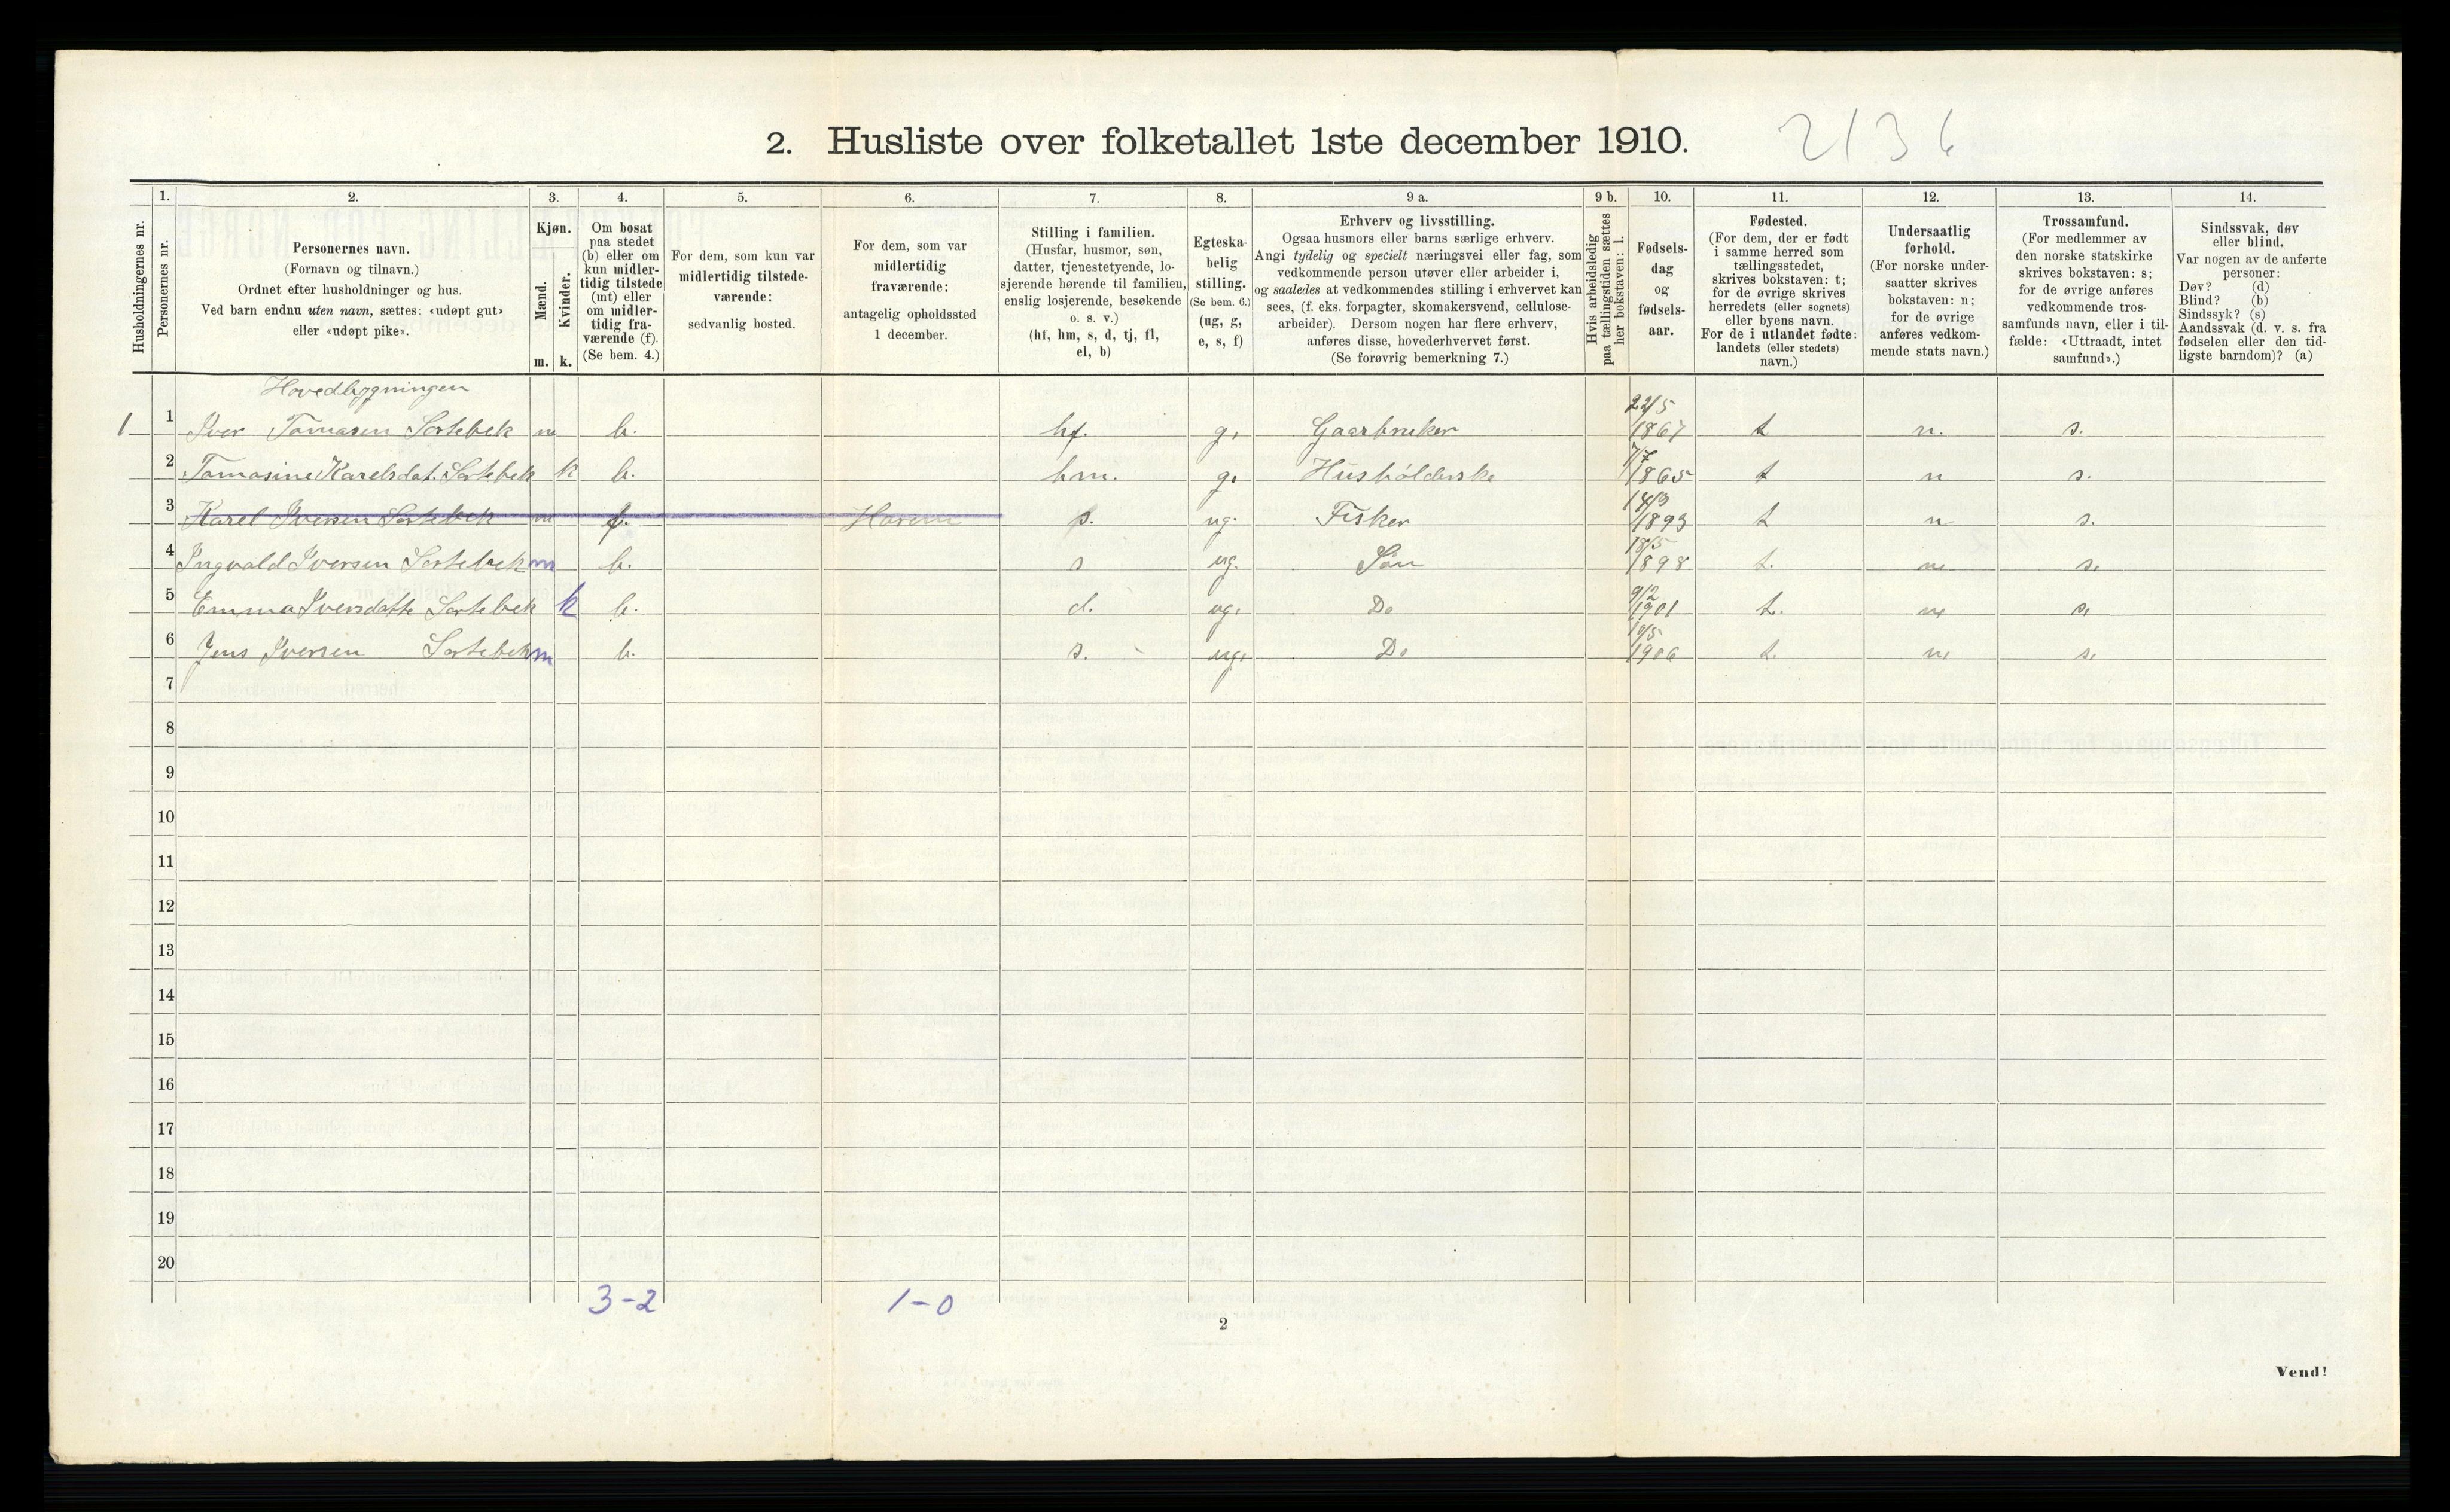 2. Husliste over folketallet 1ste december 1910.
2136
1. 2. 3. 4. 5. 6. 7. 8. 9 a. 9 b. 10. 11. 12. 13. 14.
Husholdningernes nr.
Personernes nr.
Personernes navn.
(Fornavn og tilnavn.)
Ordnet efter husholdninger og hus.
Ved barn endnu uten navn, sættes: «udøpt gut»
eller «udøpt pike».
Kjøn.
Mænd.
Kvinder.
m. k.
Om bosat
paa stedet
(b) eller om
kun midler-
tidig tilstede
(mt) eller
om midler-
tidig fra-
værende (f).
(Se bem. 4.)
For dem, som kun var
midlertidig tilstede-
værende:
sedvanlig bosted.
For dem, som var
midlertidig
fraværende:
antagelig opholdssted
1 december.
Stilling i familien.
(Husfar, husmor, søn,
datter, tjenestetyende, lo-
sjerende hørende til familien,
enslig losjerende, besøkende
o. s. v.)
(hf, hm, s, d, tj, fl,
el, b)
Egteska-
belig
stilling.
(Se bem. 6.)
(ug, g,
e, s, f)
Erhverv og livsstilling.
Ogsaa husmors eller barns særlige erhverv.
Angi tydelig og specielt næringsvei eller fag, som
vedkommende person utøver eller arbeider i,
og saaledes at vedkommendes stilling i erhvervet kan
sees, (f. eks. forpagter, skomakersvend, cellulose-
arbeider). Dersom nogen har flere erhverv,
anføres disse, hovederhvervet først.
(Se forøvrig bemerkning 7.)
Hvis arbeidsledig
paa tællingstiden sættes
her bokstaven: l.
Fødsels-
dag
og
fødsels-
aar.
Fødested.
(For dem, der er født
i samme herred som
tællingsstedet,
skrives bokstaven: t;
for de øvrige skrives
herredets (eller sognets)
eller byens navn.
For de i utlandet fødte:
landets (eller stedets)
navn.)
Undersaatlig
forhold.
(For norske under-
saatter skrives
bokstaven: n;
for de øvrige
anføres vedkom-
mende stats navn.)
Trossamfund.
(For medlemmer av
den norske statskirke
skrives bokstaven: s;
for de øvrige anføres
vedkommende tros-
samfunds navn, eller i til-
fælde: «Uttraadt, intet
samfund».)
Sindssvak, døv
eller blind.
Var nogen av de anførte
personer:
Døv? (d)
Blind? (b)
Sindssyk? (s)
Aandssvak (d. v. s. fra
fødselen eller den tid-
ligste barndom)? (a)
Hovedbygningen
1 1 Iver Tomasen Sortebek m b. hf. g. Gaarbruker 22/5 1867 t n. s.
2 Tomasine Karelsdat. Sortebek k b. hm. g. Husholderske 7/7 1865 t n s.
3 Karel Iversen Sortebek m f. s. ug. Fisker 14/3 1893 t n s.
4 Ingvald Iversen Sortebek m b. s ug. Søn 18/5 1898 t. n s.
5 Emma Iversdatte Sortebek k b. d. ug. Do 9/2 1901 t. n s.
6 Jens Iversen Sortebek m b. s. ug. Do 1906 t. n. s.
7
8
9
10
11
12
13
14
15
16
17
18
19
20
3-2 1-0
2
Vend!